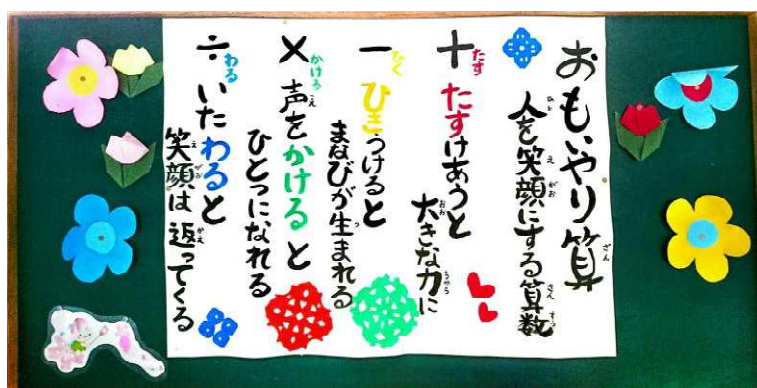 おもいやり算
人を笑顔にする算数
＋たす たすけあうと
大きな力に
－ひく ひきうけると
まなびが生まれる
×かける 声をかけると
ひとつになれる
÷わる いたわると
笑顔は返ってくる